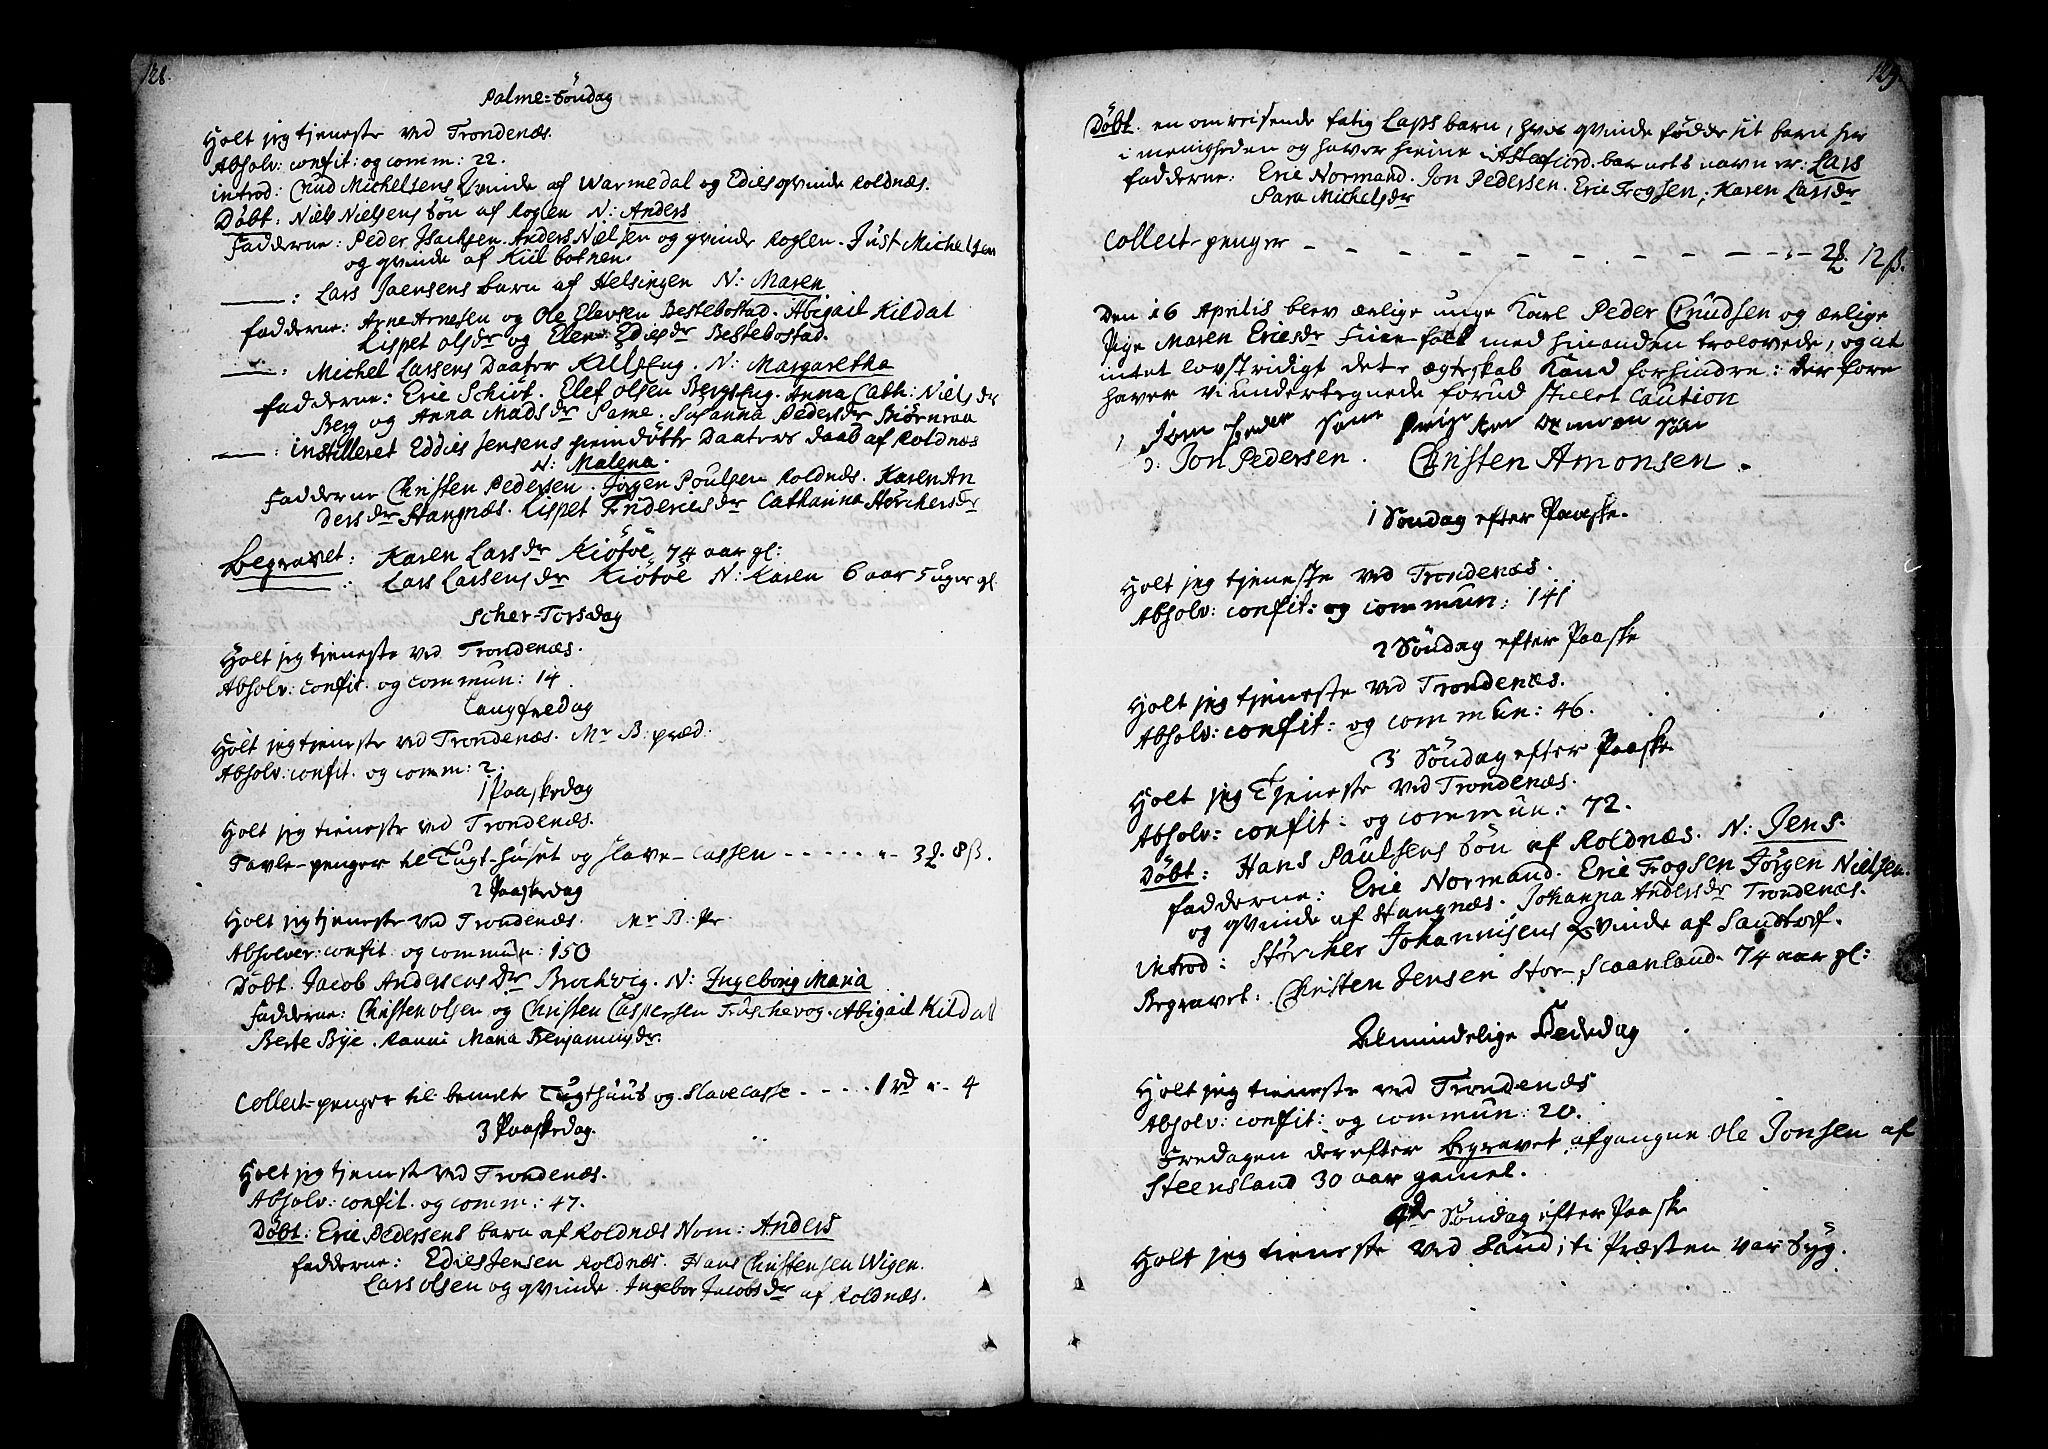 128.
Palme-Söndag
Holt jeg tjeneste ved Trondenæs.
Absolv: confit: og comm: 22.
introd: Cnud Michelsens Qvinde af Warmedal og Edies qvinde Roldnæs.
Döbt: Niels Nielsens Sön af Roglen N: Anders
Fadderne: Peder Isachsen Anders Nielsen og qvinde Roglen. Just Michelsen
og qvinde af Kiilbotnen.
——: Lars Joensens barn af Helsingen N: Maren
fadderne: Arne Arnesen og Ole Elevsen Bestebostad. Abigail Kildal
Lispet Olsdr og Elen Ediesdr Bestebostad.
——: Michel Larsens Daater N: Margaretha
fadderne: Eric Schiöt. Elef Olsen Bergshug. Anna Cath: Nielsdr
Berg og Anna Madsdr Same. Susanna Pedersdr Biörnraa
——: instilleret Eddies Jensens hjemdöbte Daaters daab af Roldnæs
N: Malena.
Fadderne Christen Pedersen. Jörgen Poulsen Roldnæs. Karen An
dersdr Stangnæs. Lispet Friderichsdr Catharina Störchersdr
Begravet: Karen Larsdr Kiötöe 74 aar gl:
——: Lars Larsensdr Kiötöe N: Karen 6 aar 5 uger gl.
Scher-Torsdag
Holt jeg tjeneste ved Trondenæs.
Absolv: confit. og commun: 14.
Langfredag
Holt jeg tjeneste ved Trondenæs. Mr B: præd:
Absolv: confit. og comm: 2.
1 Paaskedag
Holt jeg tieneste ved Trondenæs.
Tavle-penger til Tugt-huset og slave-Cassen - - - - - - 3 8 ß.
2 Paaskedag
Holt jeg tjeneste ved Trondenæs. Mr B: Pr.
Absolver: confit. og commun: 150
Döbt. Jacob Andersensdr Brochvig. N: Ingeborg Maria
Fadderne: Christen Olsen og Christen Caspersen Trüschevog. Abigail Kildal
Berte Bye. Ranni Maria Benjaminsdr
Collect-penger til bemelte Tugthuus og Slavecasse - - - - 1 rd - 4
3 Paaskedag.
Holt jeg tjeneste ved Trondenæs.
Absolv: confit. og comm: 47.
Döbt: Eric Pedersens barn af Roldnæs Nom: Anders
fadderne: Edies Jensen Roldnæs. Hans Christensen Wigen.
Lars Olsen og qvinde. Ingebor Jacobsdr af Roldnæs.
129.
Döbt. en omreisende fatig Laps barn, hvis qvinde födde sit barn her
i menigheden og haver hieme i Astefiord. barnets navn er: Lars
fadderne: Eric Normand. Jon Pedersen. Eric Frogsen, Karen Larsdr
Sara Michelsdr
Collect-penger - - - - - - - - - - 2 12 ß.
Den 16 Aprilis blev ærlige unge Karl Peder Cnudsen og ærlige
Pige Maren Ericsdr Finne-folk med hinanden trolovede, og at
intet lovstridigt dette ægteskab Kand forhindre: derfore
haver vi undertegnede forud stillet Caution
2. Jon Pedersen. Christen Amonsen.
1 Söndag efter Paaske.
Holt jeg tjeneste ved Trondenæs.
Absolv: confit: og commun: 141
2 Söndag efter Paaske
Holt jeg tjeneste ved Trondenæs.
Absolv: confit: og commun: 46.
3 Söndag efter Paaske
Holt jeg Tjeneste ved Trondenæs.
Absolv: confit: og commun: 72.
Döbt: Hans Paulsens Sön af Roldnæs. N: Jens.
fadderne: Eric Normand. Eric Frogsen Jörgen Nielsen
og qvinde af Stangnæs. Johanna Andersdr Trondenæs.
introd: Störcher Johannisens Qvinde af Sandtorf.
Begravet: Christen Jensen Stor-Scaanland. 74 aar gl:
Almindelige Bededag
Holt jeg tieneste ved Trondenæs
Absolv: confit: og commun: 20.
Fredagen derefter begravet afgangne Ole Jonsen af
Steensland 30 aar gamel.
4de Söndag efter Paaske
Holt jeg tieneste ved Sand; ti Præsten var syg.